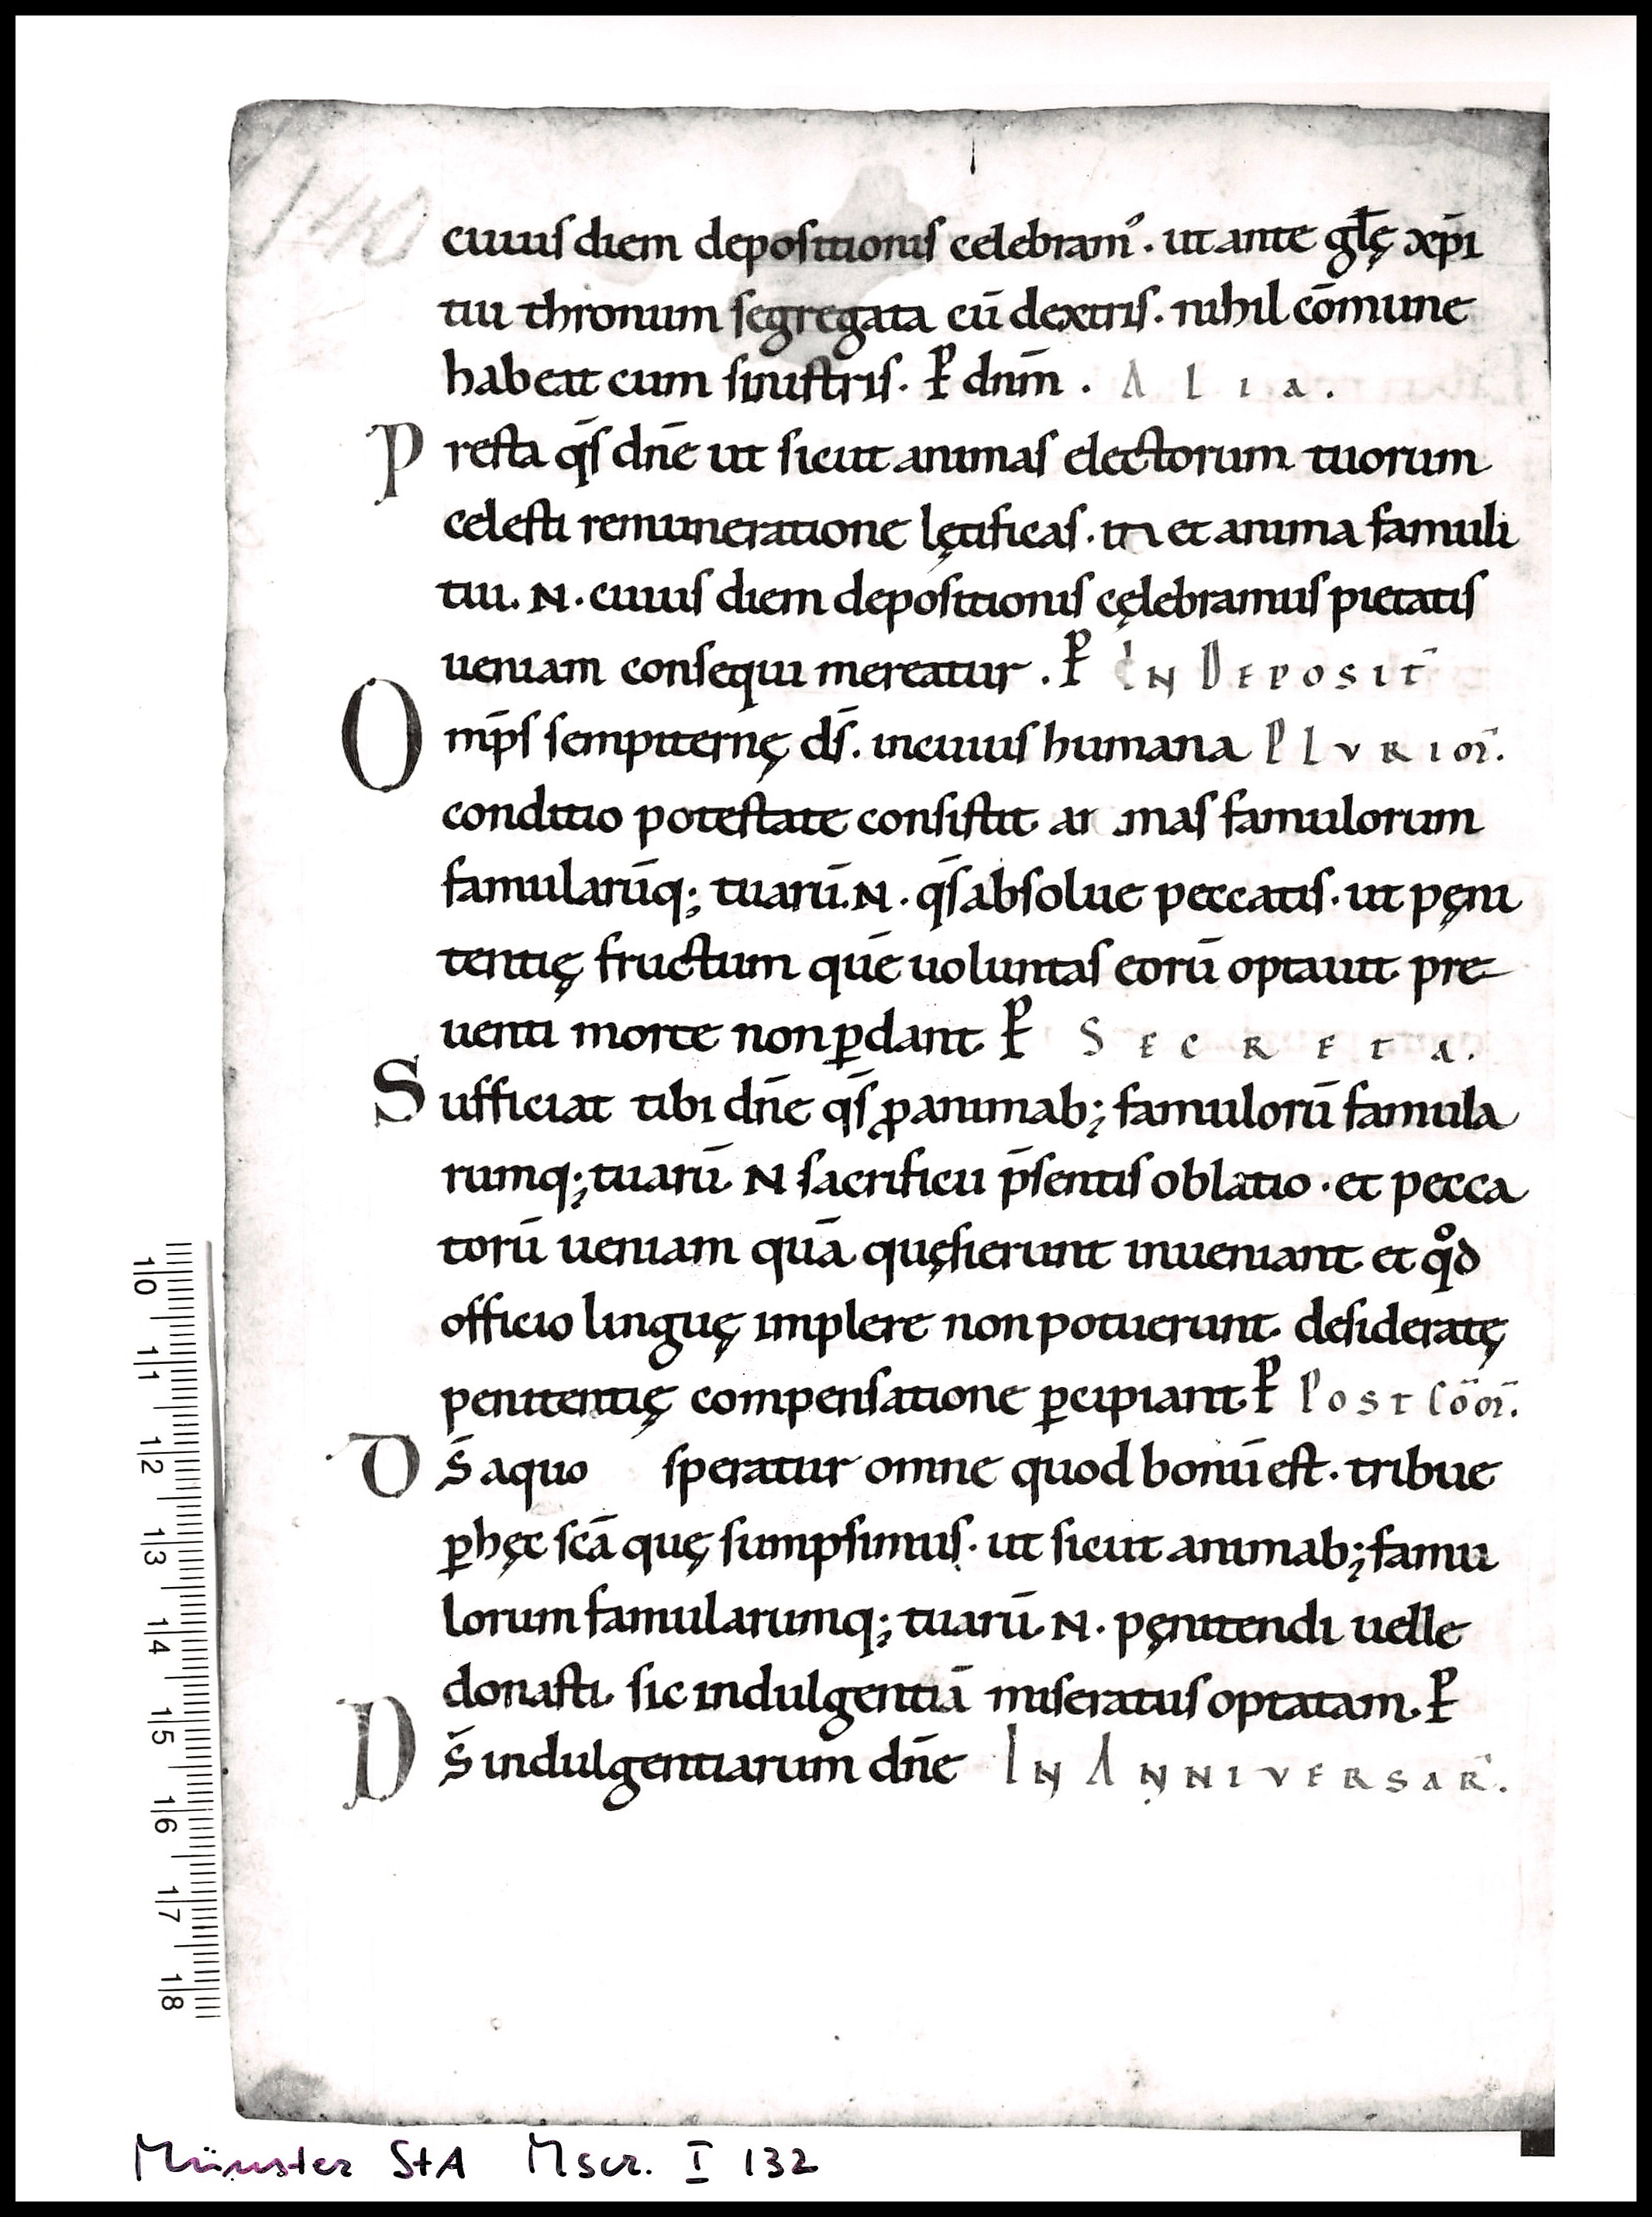 140
cuius diem depositionis celebram᾽. ut ante głę xp̄i
tui thronum segregata cū dextris. nihil cōmune
habeat cum sinistris. P dnm̄. Alia.
Presta qs̄ dn̄e ut sicut animas electorum tuorum
celesti remuneratione lętificas. et anima famuli
tui. N. cuius diem depositionis cęlebramus pietatis
ueniam consequi mereatur. P IN DEPOSIT̄
Omp̄s sempiternę ds̄. incuius humana PLVRIOR̄.
conditio potestate consistit. ar mas famulorum
famularūq; tuarū. N. qs̄ absolue peccatis. ut pęni
tentię fructum quē uoluntas eorū optauit. pre-
uenti morte non ꝑdant. P SECRETA.
Sufficiat tibi dn̄e qs̄ ꝓ animab; famulorū famula
rumq; tuarū. N sacrificii p̄sentis oblatio. et pecca
torū ueniam quā quęsierunt inueniant. et qͦd
officio linguę implere non potuerunt. desideratę
penitentię compensatione ꝑcipiant. P POST CŌOR̄.
DS̄ aquo speratur omne quod bonū est. tribue
ꝑ hęc scā quę sumpsimus. ut sicut animab; famu
lorum famularumq; tuarū. N. pęnitendi uelle
donasti. sic indulgentiā miseratus optatam. P
DS̄ indulgentiarum dn̄e IN ANNIVERSAR̄.
10 11 12 13 14 15 16 17 18
Münster StA Mscr. I 132